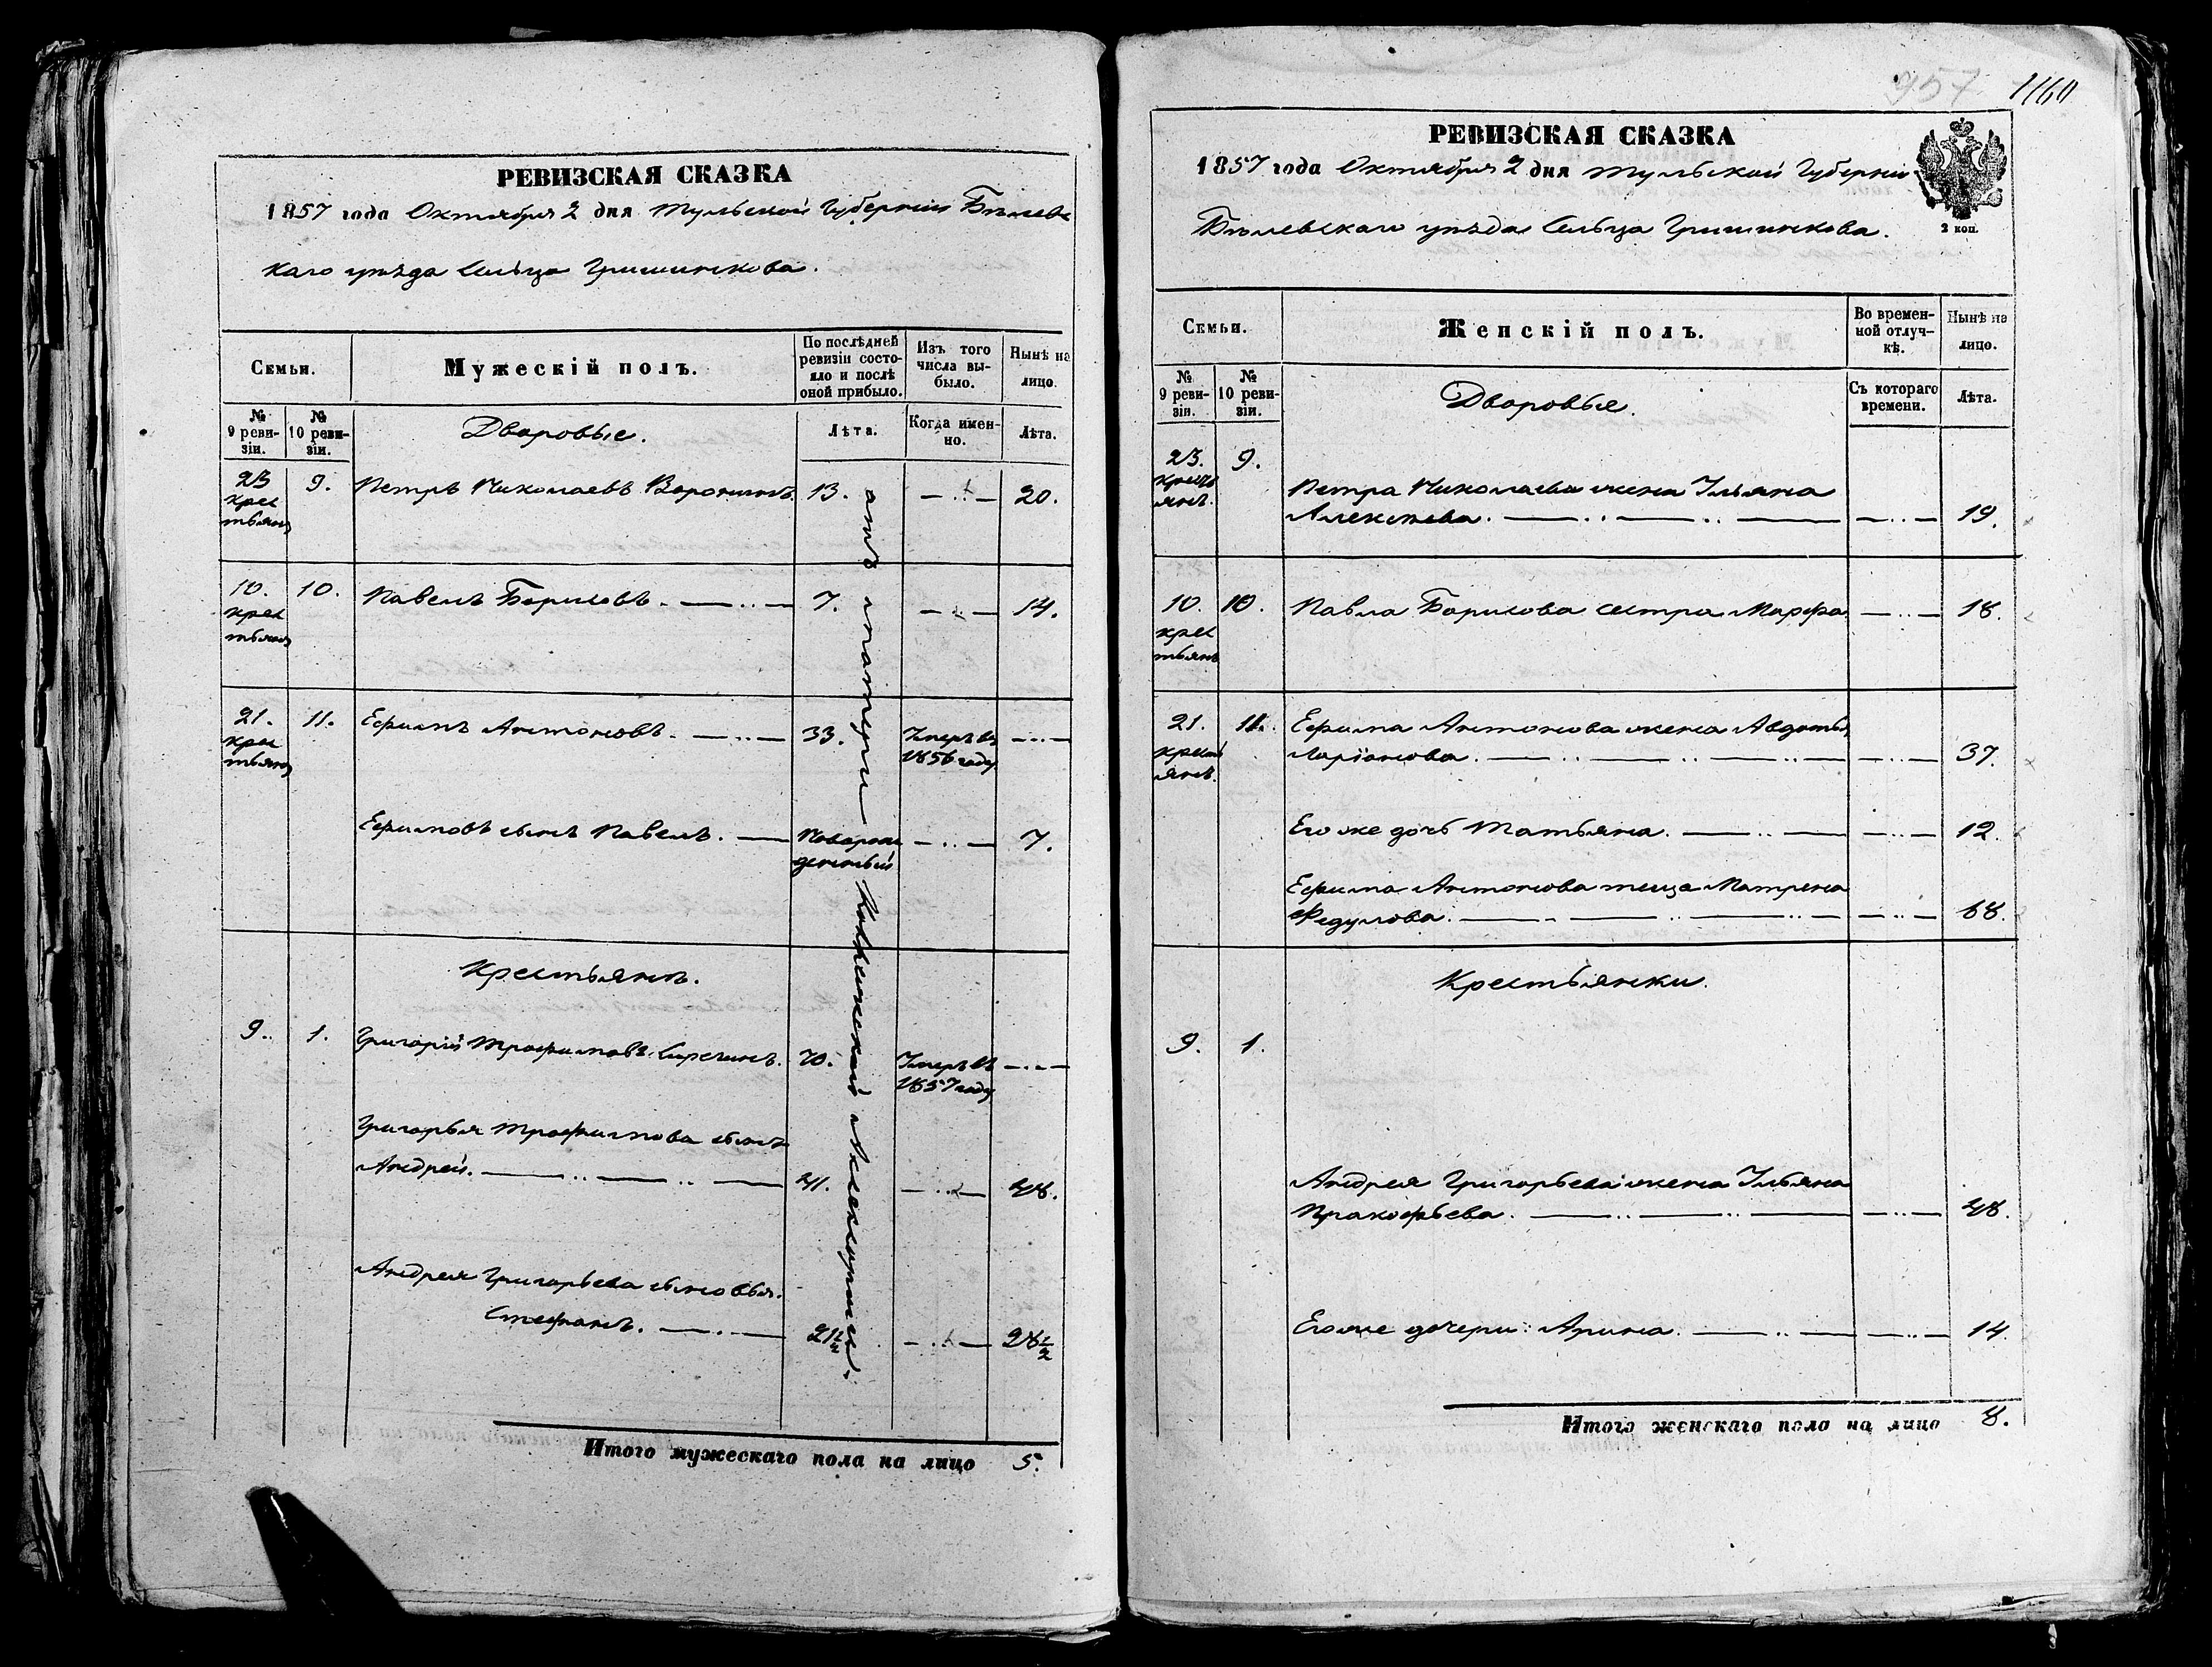 РЕВИЗСКАЯ СКАЗКА
1857 года Октября 2 дня Тульской Губернiи Бѣлевс
каго уѣзда Сельца Гришинкова.
Семьи.
Мужескiй полъ.
По послѣдней ревизiи состояло и послѣ оной прибыло.
Изъ того числа выбыло.
Нынѣ на лицо.
№ 9 ревизiи.
№ 10 ревизiи.
Дворовые.
Лѣта.
Когда именно.
Лѣта.
23 крестьянъ 9. Петръ Николаевъ Воронинъ 13. 20.
10. крестьянъ 10. Павелъ Борисовъ. 7. 14.
21. крестьянъ 11. Ефимъ Антоновъ. 33. Умеръ въ 1856 году
Ефимовъ сынъ Павелъ. Новорожденный 7.
Крестьянъ.
9. 1. Григорiй Трофимовъ 70. Умеръ въ 1857 году
Григорья Трофимова сынъ
Андрей. 41. 48.
Андрея Григорьева сыновья.
Стефанъ. 21½ 28½
Итого мужескаго пола на лицо 5.
957 1160
РЕВИЗСКАЯ СКАЗКА
1857 года Октября 2 дня Тульской Губернiи
Бѣлевскаго уѣзда Сельца Гришинкова.
2 коп.
Семьи.
Женскiй полъ.
Во временной отлучкѣ.
Нынѣ на лицо.
№ 9 ревизiи.
№ 10 ревизiи.
Дворовыя.
Съ котораго времени.
Лѣта.
23. крестьянъ. 9.
Петра Николаева жена Ульяна
Алексѣева. 19.
10. крестьянъ 10. Павла Борисова сестра Марфа 18.
21. крестьянъ. 11. Ефима Антонова жена Авдотья
Ларiонова. 37.
Его же дочь Татьяна. 12.
Ефима Антонова теща Матрена
Федулова. 68.
Крестьянки.
9. 1.
Андрея Григорьева жена Ульяна
Пракофьева. 48.
Его же дочери: Арина. 14.
Итого женскаго пола на лицо 8.